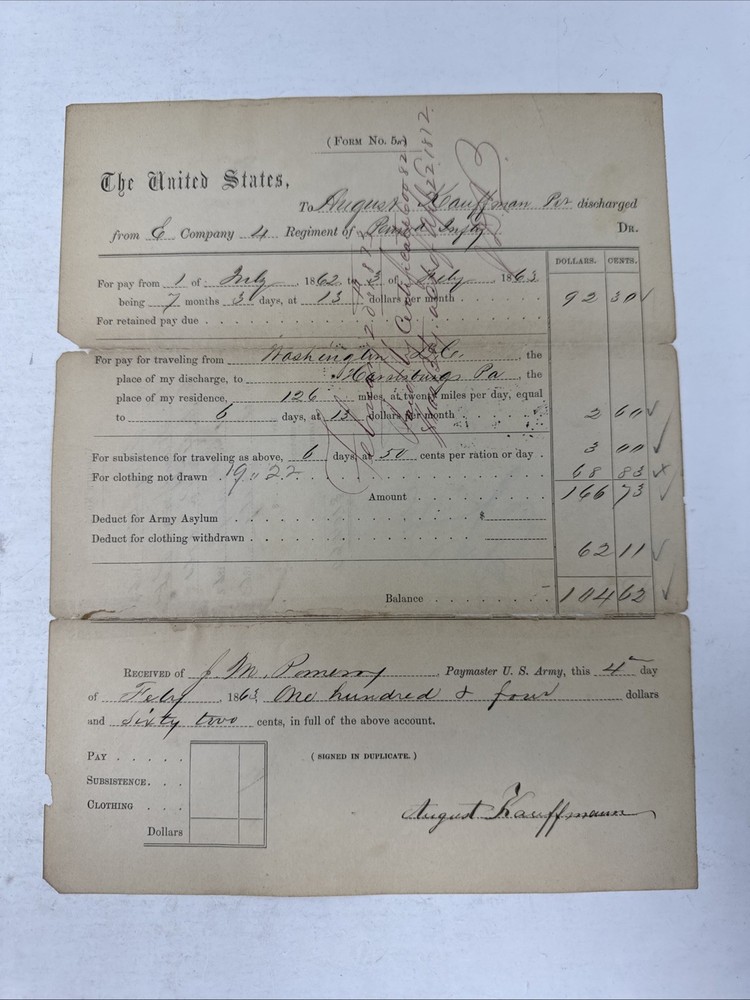 (FORM No. 5.)
The United States,
To August Kauffman Pvt discharged
from E Company 4 Regiment of Infty DR.
DOLLARS. CENTS.
For pay from 1 of July, 1862 to 3 of Feby, 1863
being 7 months 3 days, at 13 dollars per month 92 30
For retained pay due
For pay for traveling from Washington D.C., the
place of my discharge, to Harrisburg Pa, the
place of my residence, 126 miles, at twenty miles per day, equal
to 6 days, at 13 dollars per month 2 60
For subsistence for traveling as above, 6 days, at 50 cents per ration or day 3 00
For clothing not drawn 19.22 68 83
Amount 166 73
Deduct for Army Asylum $
Deduct for clothing withdrawn 62 11
Balance 104 62
RECEIVED of J. M. Pomeroy, Paymaster U. S. Army, this 4th day
of Feby 1863, One hundred & four dollars
and Sixty two cents, in full of the above account.
PAY
(SIGNED IN DUPLICATE.)
SUBSISTENCE.
CLOTHING
August Kauffmann
Dollars